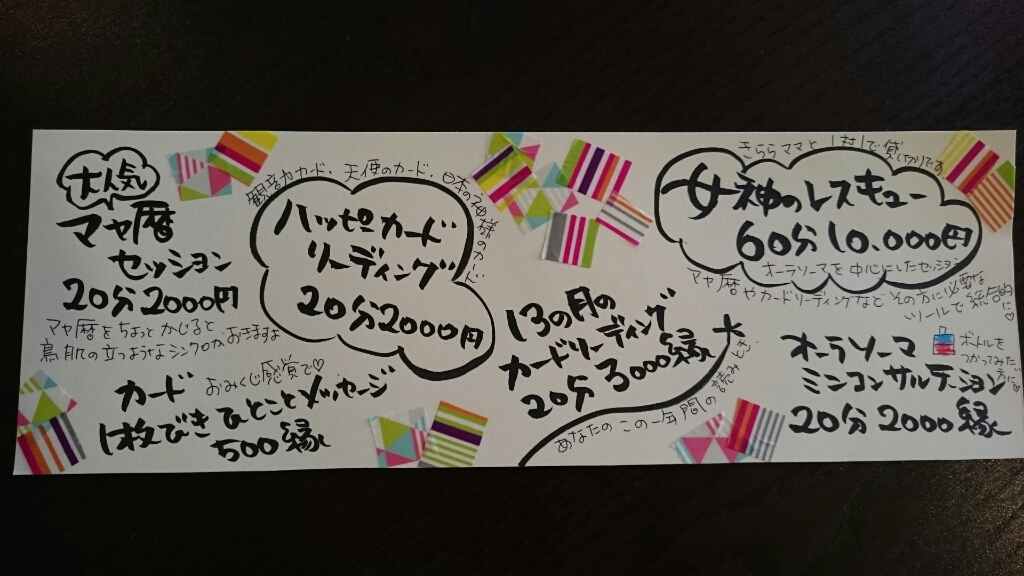 大人気
マヤ暦
セッション
20分2000円
マヤ暦をちょっとかじると
鳥肌の立つようなシンクロがおきますよ
カード
おみくじ感覚で♡
1枚びきひとことメッセージ
500縁
観音力カード、天使のカード、日本の神様のカード
ハッピーカード
リーディング
20分2000円
13の月の
カードリーディング
20分3000縁
あなたのこの一年間の読みとき
きららママと1対1で貸し切りです
女神のレスキュー
60分10.000円
オーラソーマを中心にしたセッション
マヤ暦やカードリーディングなどその方に必要な
ツールで総合的に♡
オーラソーマ
ボトルを
つかってみたい
方に
ミニコンサルテーション
20分2000縁